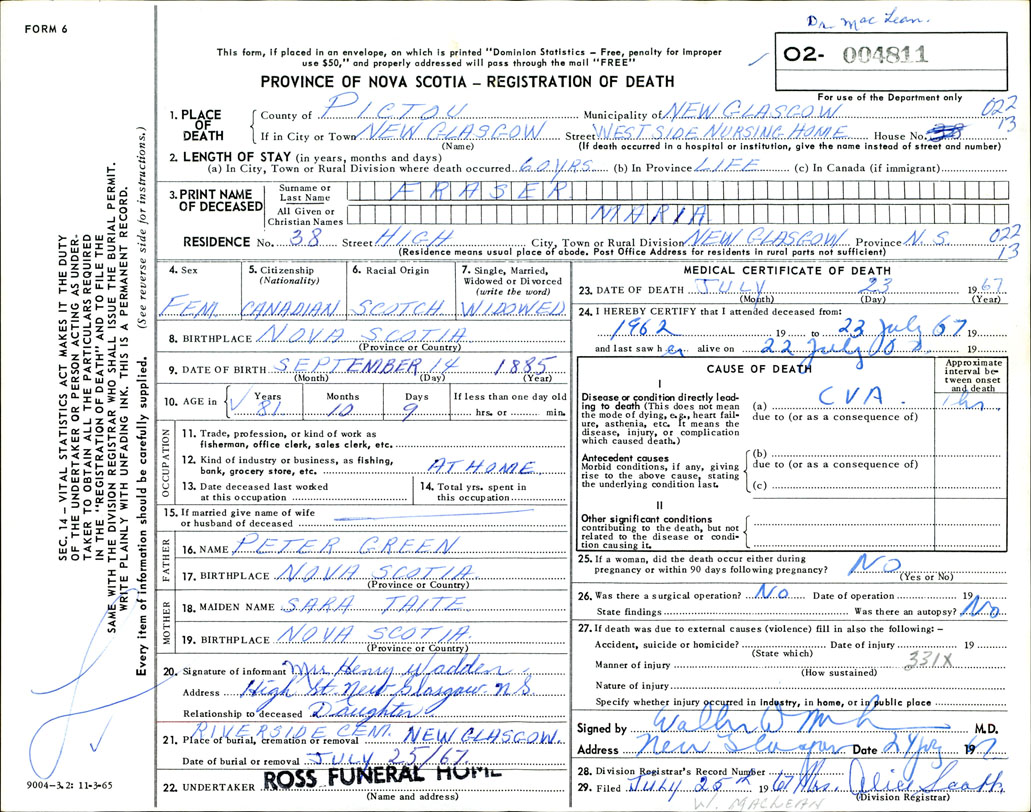 FORM 6
Dr. MacLean.
02- 004811
This form, if placed in an envelope, on which is printed "Dominion Statistics – Free, penalty for improper
use $50," and properly addressed will pass through the mail "FREE"
PROVINCE OF NOVA SCOTIA – REGISTRATION OF DEATH
For use of the Department only
1. PLACE OF DEATH
County of PICTOU Municipality of NEW GLASGOW 022
If in City or Town NEW GLASGOW Street WEST SIDE NURSING HOME House No. 13
(Name) (If death occurred in a hospital or institution, give the name instead of street and number)
2. LENGTH OF STAY (in years, months and days)
(a) In City, Town or Rural Division where death occurred 60 YRS. (b) In Province LIFE (c) In Canada (if immigrant)
3. PRINT NAME OF DECEASED
Surname or Last Name FRASER
All Given or Christian Names MARIA
RESIDENCE No. 38 Street HIGH City, Town or Rural Division NEW GLASGOW Province N.S. 022
(Residence means usual place of abode. Post Office Address for residents in rural parts not sufficient) 13
4. Sex FEM.
5. Citizenship (Nationality) CANADIAN
6. Racial Origin SCOTCH
7. Single, Married, Widowed or Divorced (write the word) WIDOWED
8. BIRTHPLACE NOVA SCOTIA
(Province or Country)
9. DATE OF BIRTH SEPTEMBER 14 1885
(Month) (Day) (Year)
10. AGE in Years 81 Months 10 Days 9 If less than one day old hrs. or min.
OCCUPATION
11. Trade, profession, or kind of work as
fisherman, office clerk, sales clerk, etc.
12. Kind of industry or business, as fishing,
bank, grocery store, etc. AT HOME
13. Date deceased last worked
at this occupation
14. Total yrs. spent in
this occupation
15. If married give name of wife
or husband of deceased
FATHER
16. NAME PETER GREEN
17. BIRTHPLACE NOVA SCOTIA
(Province or Country)
MOTHER
18. MAIDEN NAME SARA TAITE
19. BIRTHPLACE NOVA SCOTIA
(Province or Country)
20. Signature of informant Mrs Henry Wadden.
Address High St. New Glasgow N.S.
Relationship to deceased Daughter
21. Place of burial, cremation or removal RIVERSIDE CEM. NEW GLASGOW.
Date of burial or removal JULY 25/67
22. UNDERTAKER ROSS FUNERAL HOME
(Name and address)
MEDICAL CERTIFICATE OF DEATH
23. DATE OF DEATH JULY 23 1967
(Month) (Day) (Year)
24. I HEREBY CERTIFY that I attended deceased from:
1962 19 to 23 July 67 19
and last saw her alive on 22 July 19
CAUSE OF DEATH
Approximate interval between onset and death
I
Disease or condition directly leading
to death (This does not mean
the mode of dying, e.g., heart failure,
asthenia, etc. It means the
disease, injury, or complication
which caused death.)
(a) CVA. hr.
due to (or as a consequence of)
Antecedent causes
Morbid conditions, if any, giving
rise to the above cause, stating
the underlying condition last.
(b)
due to (or as a consequence of)
(c)
II
Other significant conditions
contributing to the death, but not
related to the disease or condition
causing it.
25. If a woman, did the death occur either during
pregnancy or within 90 days following pregnancy? NO
(Yes or No)
26. Was there a surgical operation? NO Date of operation 19
State findings Was there an autopsy? No
27. If death was due to external causes (violence) fill in also the following: –
Accident, suicide or homicide? Date of injury 19
(State which)
Manner of injury 331X
(How sustained)
Nature of injury
Specify whether injury occurred in industry, in home, or in public place
Signed by M.D.
Address New Glasgow Date 24 July 1967
28. Division Registrar's Record Number
29. Filed July 25th 1967 Mrs. Alice
(Division Registrar)
W. MACLEAN
SEC. 14 – VITAL STATISTICS ACT MAKES IT THE DUTY
OF THE UNDERTAKER OR PERSON ACTING AS UNDERTAKER
TO OBTAIN ALL THE PARTICULARS REQUIRED
IN THE "REGISTRATION OF DEATH" AND TO FILE THE
SAME WITH THE DIVISION REGISTRAR WHO SHALL ISSUE THE BURIAL PERMIT.
WRITE PLAINLY WITH UNFADING INK. THIS IS A PERMANENT RECORD.
Every item of information should be carefully supplied. (See reverse side for instructions.)
9004-3.2: 11-3-65